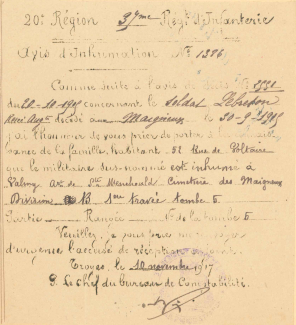 20e Région 37me Régt d'Infanterie
Avis d'Inhumation No 1326
Comme suite à l'avis de décès No 3551
du 20-10-1915 concernant le soldat Lebreton
René Augte décédé aux Maigneux le 30-9-1915
j'ai l'honneur de vous prier de porter à la connais-
sance de la famille habitant 52 Rue de Voltaire
que le militaire sus-nommé est inhumé à
Valmy Ar. de Ste Menehould Cimetière des Maigneux
Division B 1re travée tombe 5
Partie Rangée No de la tombe 5
Veuillez, je vous prie
d'urgence l'accusé de réception
Troyes, le 10 novembre 1917
P. Le Chef du bureau de Comptabilité